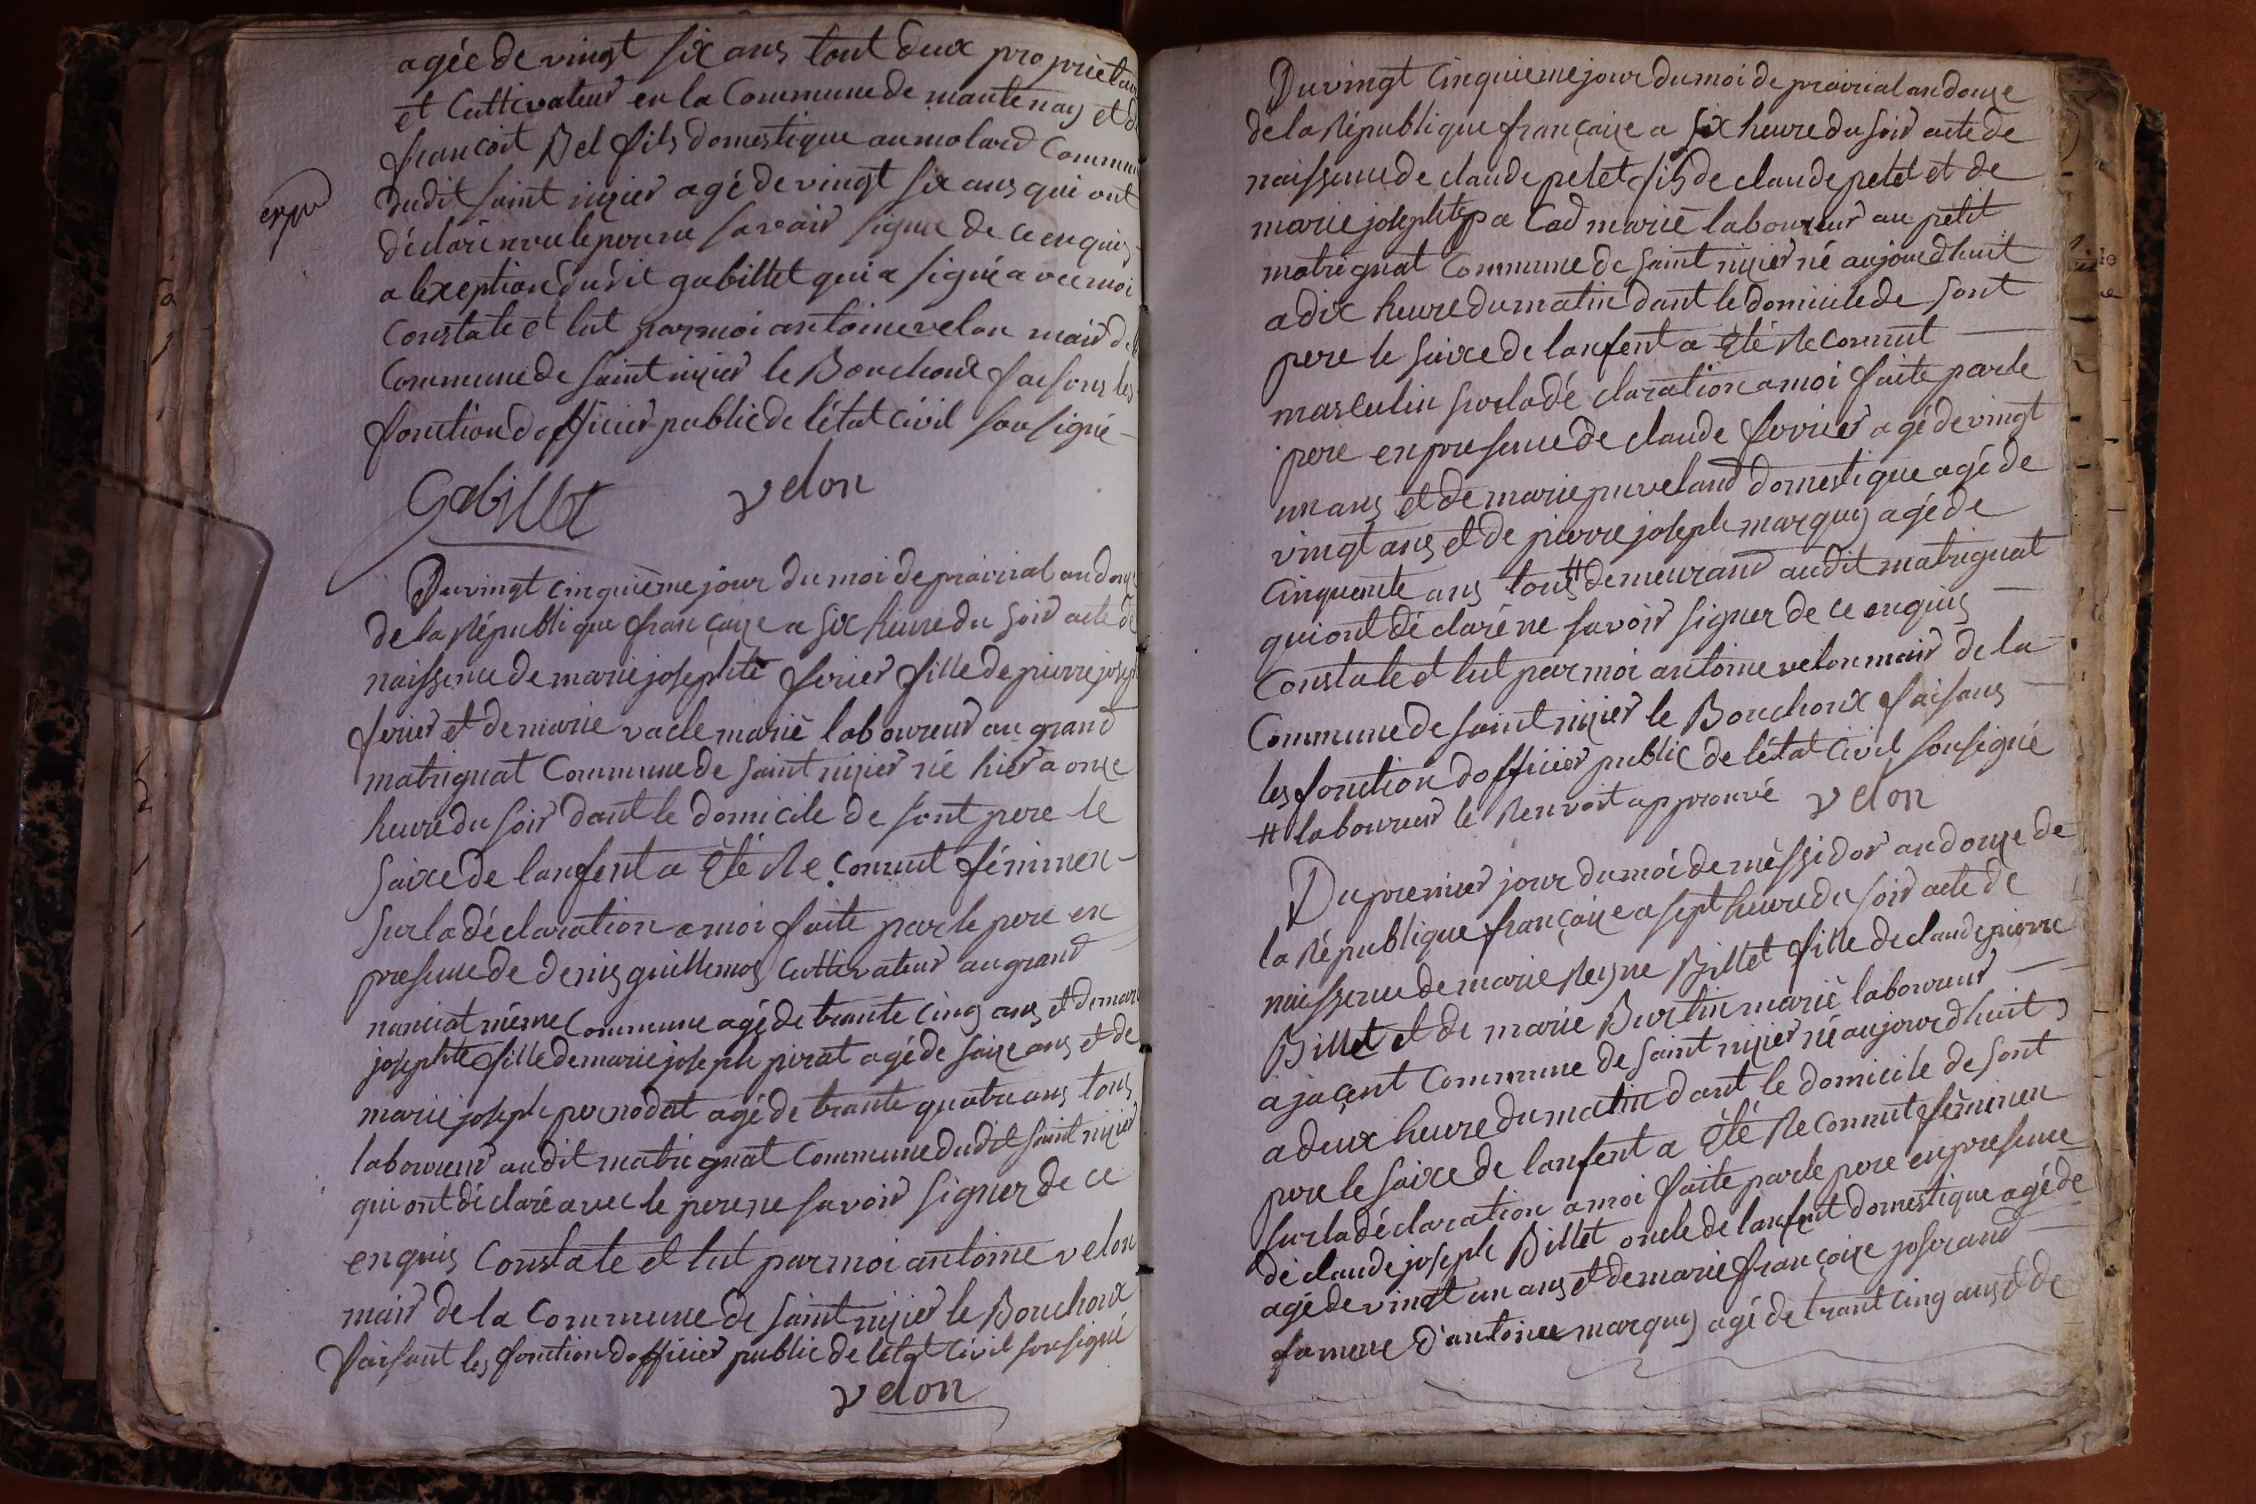 agée de vingt six ans tout deux proprietair
et Cultivateur en la Commune de mantenay et de
francoit Bel fils domestique au molard Commun
dudit saint nizier agé de vingt six ans qui ont
expé
déclaré le pere ne savoir signe de ce enquis
a lexeption dudit gabillet qui a signé avec moi
Constate et lut par moi antoine velon mair de la
Commune de saint nizier le Bouchoux faisons les
fonction dofficier public de létat Civil sousigné
Gabillet velon
Du vingt cinquième jour du moi de prairial an douze
de la République françaize a six heure du soir acte de
naissence de marie josephte ferier fille de pierre joseph
ferier et de marie vacle marié laboureur au grand
matrignat Commune de saint nizier né hier a onze
heure du soir dant le domicile de sont pere le
saixe de lanfent a Eté Reconnut féminen
sur la déclaration a moi faite par le pere en
presence de denis guillemos Cultivateur au grand
nanciat même Commune agé de trante cinq ans et de mari
josephte fille de marie joseph pirat agé de saize ans et de
marie joseph pernodat agé de trante quatre ans tous
laboureur audit matrignat Commune dudit saint nizier
qui ont déclaré avec le pere ne savoir signer de ce
enquis Constate et lut par moi antoine velon
mair de la Commune de saint nizier le Bouchoux
faisant les fonction dofficier public de létat Civil sousigné
velon
Du vingt Cinquieme jour du moi de prairial an douze
de la République françaize a six heure du soir acte de
naissence de claude petet fils de claude petet et de
marie josephte pa Cad marié laboureur au petit
matrignat Commune de saint nizier né aujourdhuit
a dix heure du matin dant le domicile de sont
pere le saixe de lanfent a Eté Reconnut
masculin sur la déclaration a moi faite par le
pere en presence de claude ferrier agé de vingt
un ans et de marie puveland domestique agé de
vingt ans et de pierre joseph marquis agé de
Cinquente ans tous # demeurand audit matrignat
qui ont déclaré ne savoir signer de ce enquis
Constate et lut par moi antoine velon mair de la
Commune de saint nizier le Bouchoux faisans
les fonction dofficier public de létat Civil sousigné
# laboureur le Renvoit approuvé velon
Du premier jour du moi de messidor an douze de
la République françaize a sept heure du soir acte de
naissence de marie Reine Billet fille de claude pierre
Billet et de marie Burtin marié laboureur
ajacent Commune de saint nizier né aujourdhuit
a deux heure du matin dant le domicile de sont
pere le saixe de lanfent a Eté Reconnut féminen
sur la déclaration a moi faite par le pere en presence
de claude joseph Billet oncle de lanfent domestique agé de
agé de vingt un ans et de marie françoize joserand
famme d'antoine marquis agé de trant cinq ans et de